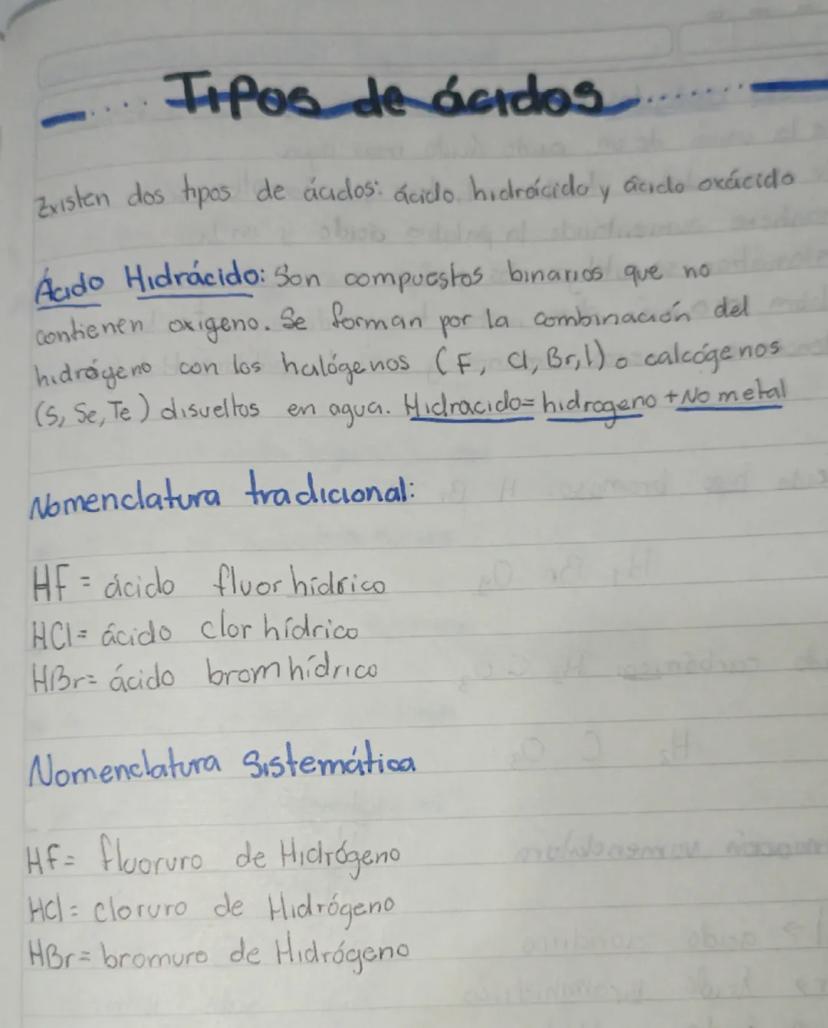 Tipos de ácidos
Existen dos tipos de ácidos: ácido hidrácido y ácido oxácido
Ácido Hidrácido: Son compuestos binarios que no
contienen oxigeno. Se forman por la combinación del
hidrógeno con los halógenos (F, Cl, Br, I) o calcógenos
(S, Se, Te) disueltos en agua. Hidracido= hidrogeno + No metal
Nomenclatura tradicional:
HF = ácido fluorhídrico
HCl = ácido clorhídrico
HBr = ácido bromhídrico
Nomenclatura Sistemática
HF = fluoruro de Hidrógeno
HCl = cloruro de Hidrógeno
HBr = bromuro de Hidrógeno